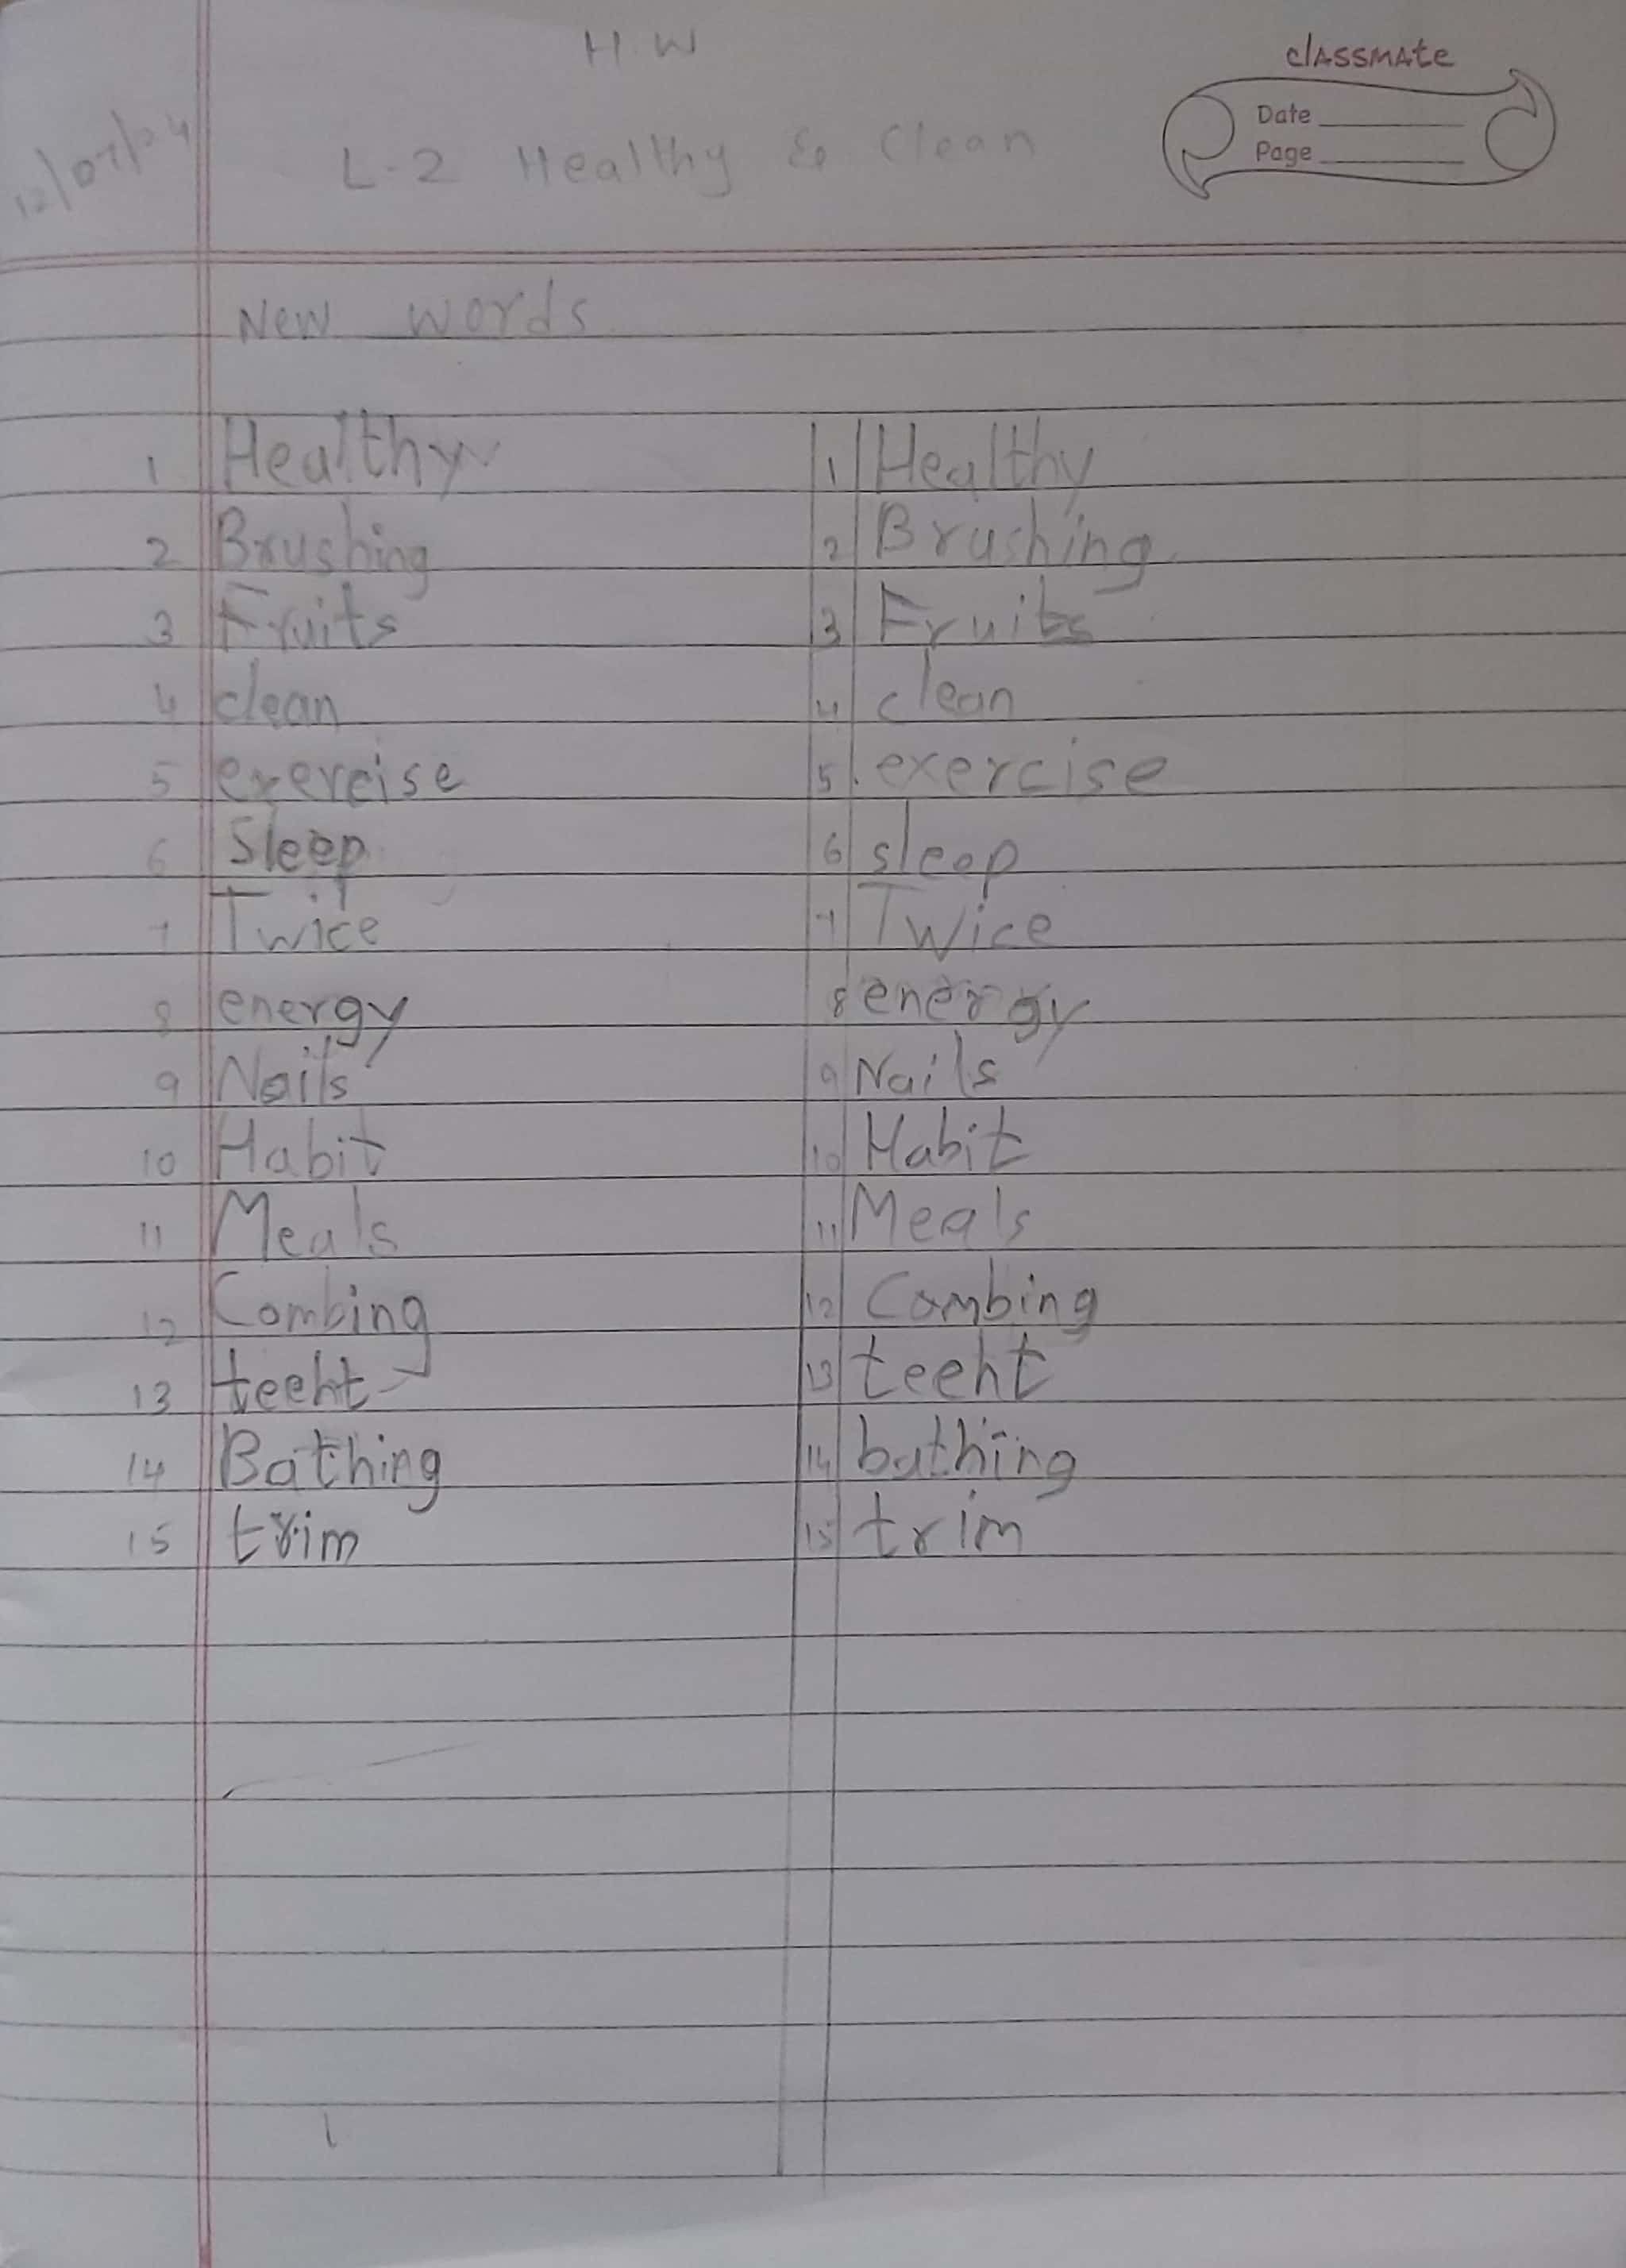 H W
classmate
Date
Page
12/07/24
L-2 Healthy & Clean
New words
1 Healthy 1 Healthy
2 Brushing 2 Brushing
3 Fruits 3 Fruits
4 clean 4 clean
5 exercise 5. exercise
6 Sleep 6 sleep
7 Twice 7 Twice
8 energy 8 energy
9 Nails 9 Nails
10 Habit 10 Habit
11 Meals 11 Meals
12 Combing 12 Combing
13 teeht 13 teeht
14 Bathing 14 bathing
15 trim 15 trim